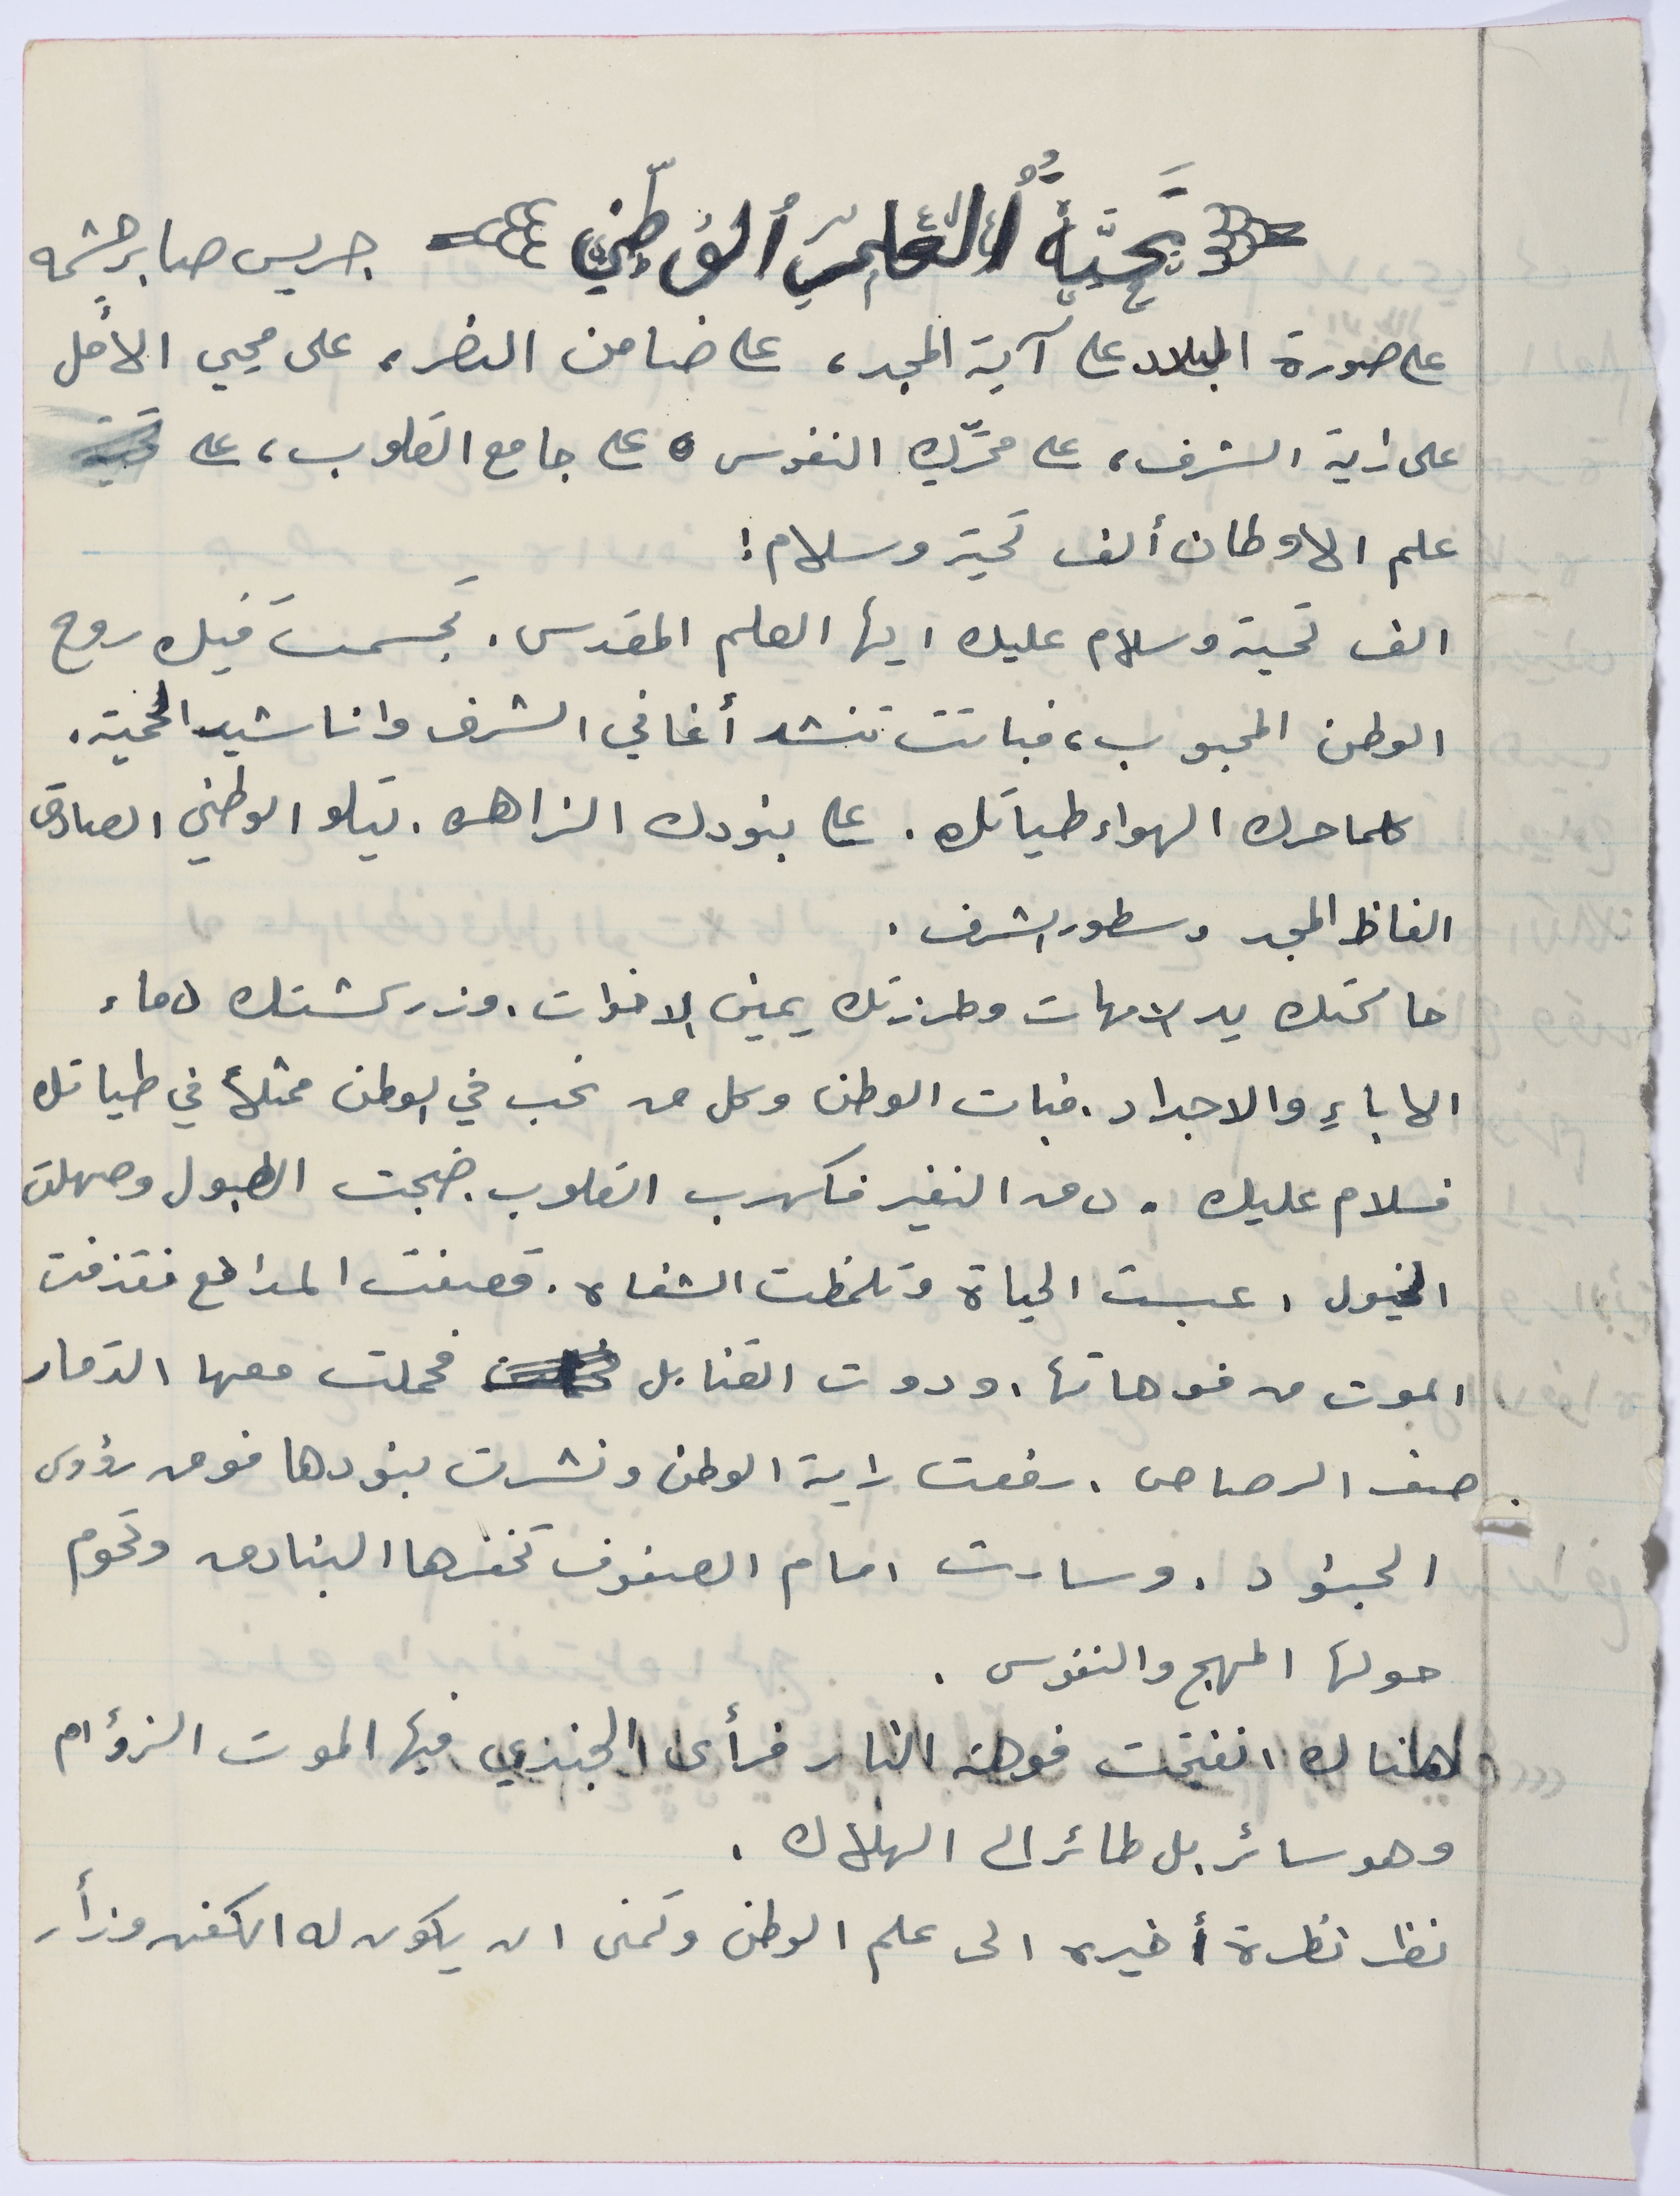 تَحيَّةُ العَلَمِ الوَطَنيّ جريس صابر خشمه
على صورة البلاد على آية المجد، على ضامن النصر، على محيي الأمل
على راية الشرف، على محرّك النفوس، على جامع القلوب، على
علم الاوطان ألف تحية وسلام!
الف تحية وسلام عليك ايها العلم المقدس. تجسمت فيك روح
الوطن المحبوب، فباتت تنشد أغاني الشرف واناشيد الحمية.
كلما حرك الهواء طياتك. على بنودك الزاهره. يتلو الوطني الصادق
الفاظ المجد وسطور الشرف.
حاكتك يد الامهات وطرزتك يمين الاخوات. وزركشتك دماء
الاباءِ والاجداد. فبات الوطن وكل من نحب في الوطن ممثلاً في طياتك
فسلام عليك. دق النفير فكهرب القلوب. ضجت الطبول وصهلت
الخيول، عبست الحياة وتلمظت الشفاه. قصفت المدافع فقذفت
الموت من فوهاتها. ودوت القنابل فحملت معها الدمار
صف الرصاص. رفعت راية الوطن ونشرت بنودها فوق رؤوس
الجنود. وسارت امام الصفوف تخفرها البنادق وتحوم
حولها المهج والنفوس.
هناك انفتحت فوهة النار فرأى الجندي فيها الموت الزؤام
وهو سائر بل طائر الى الهلاك.
نظر نظرة أخيره الى علم الوطن وتمنى ان يكون له الكفن وزأر